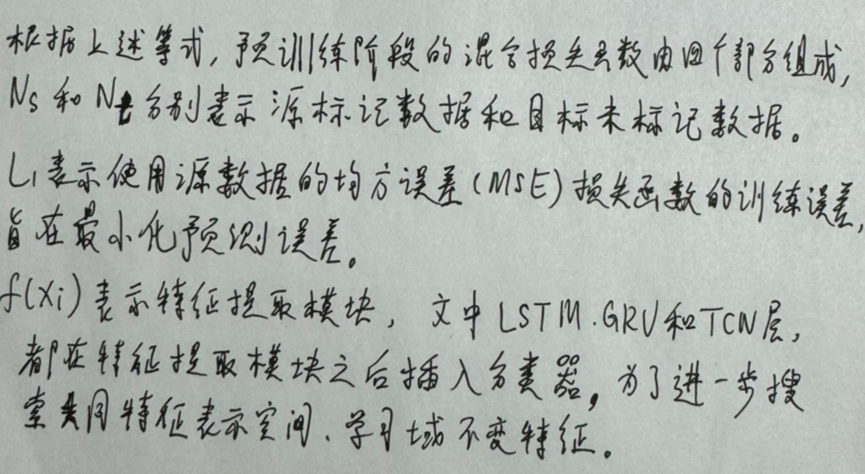 根据上述等式，预训练阶段的混合损失函数由四个部分组成，
Ns 和 Nt 分别表示源标记数据和目标未标记数据。
L₁表示使用源数据的均方误差(MSE)损失函数的训练误差，
旨在最小化预测误差。
f(xi)表示特征提取模块，文中LSTM.GRU和TCN层，
都在特征提取模块之后插入分类器，为了进一步搜
索共同特征表示空间、学习域不变特征。